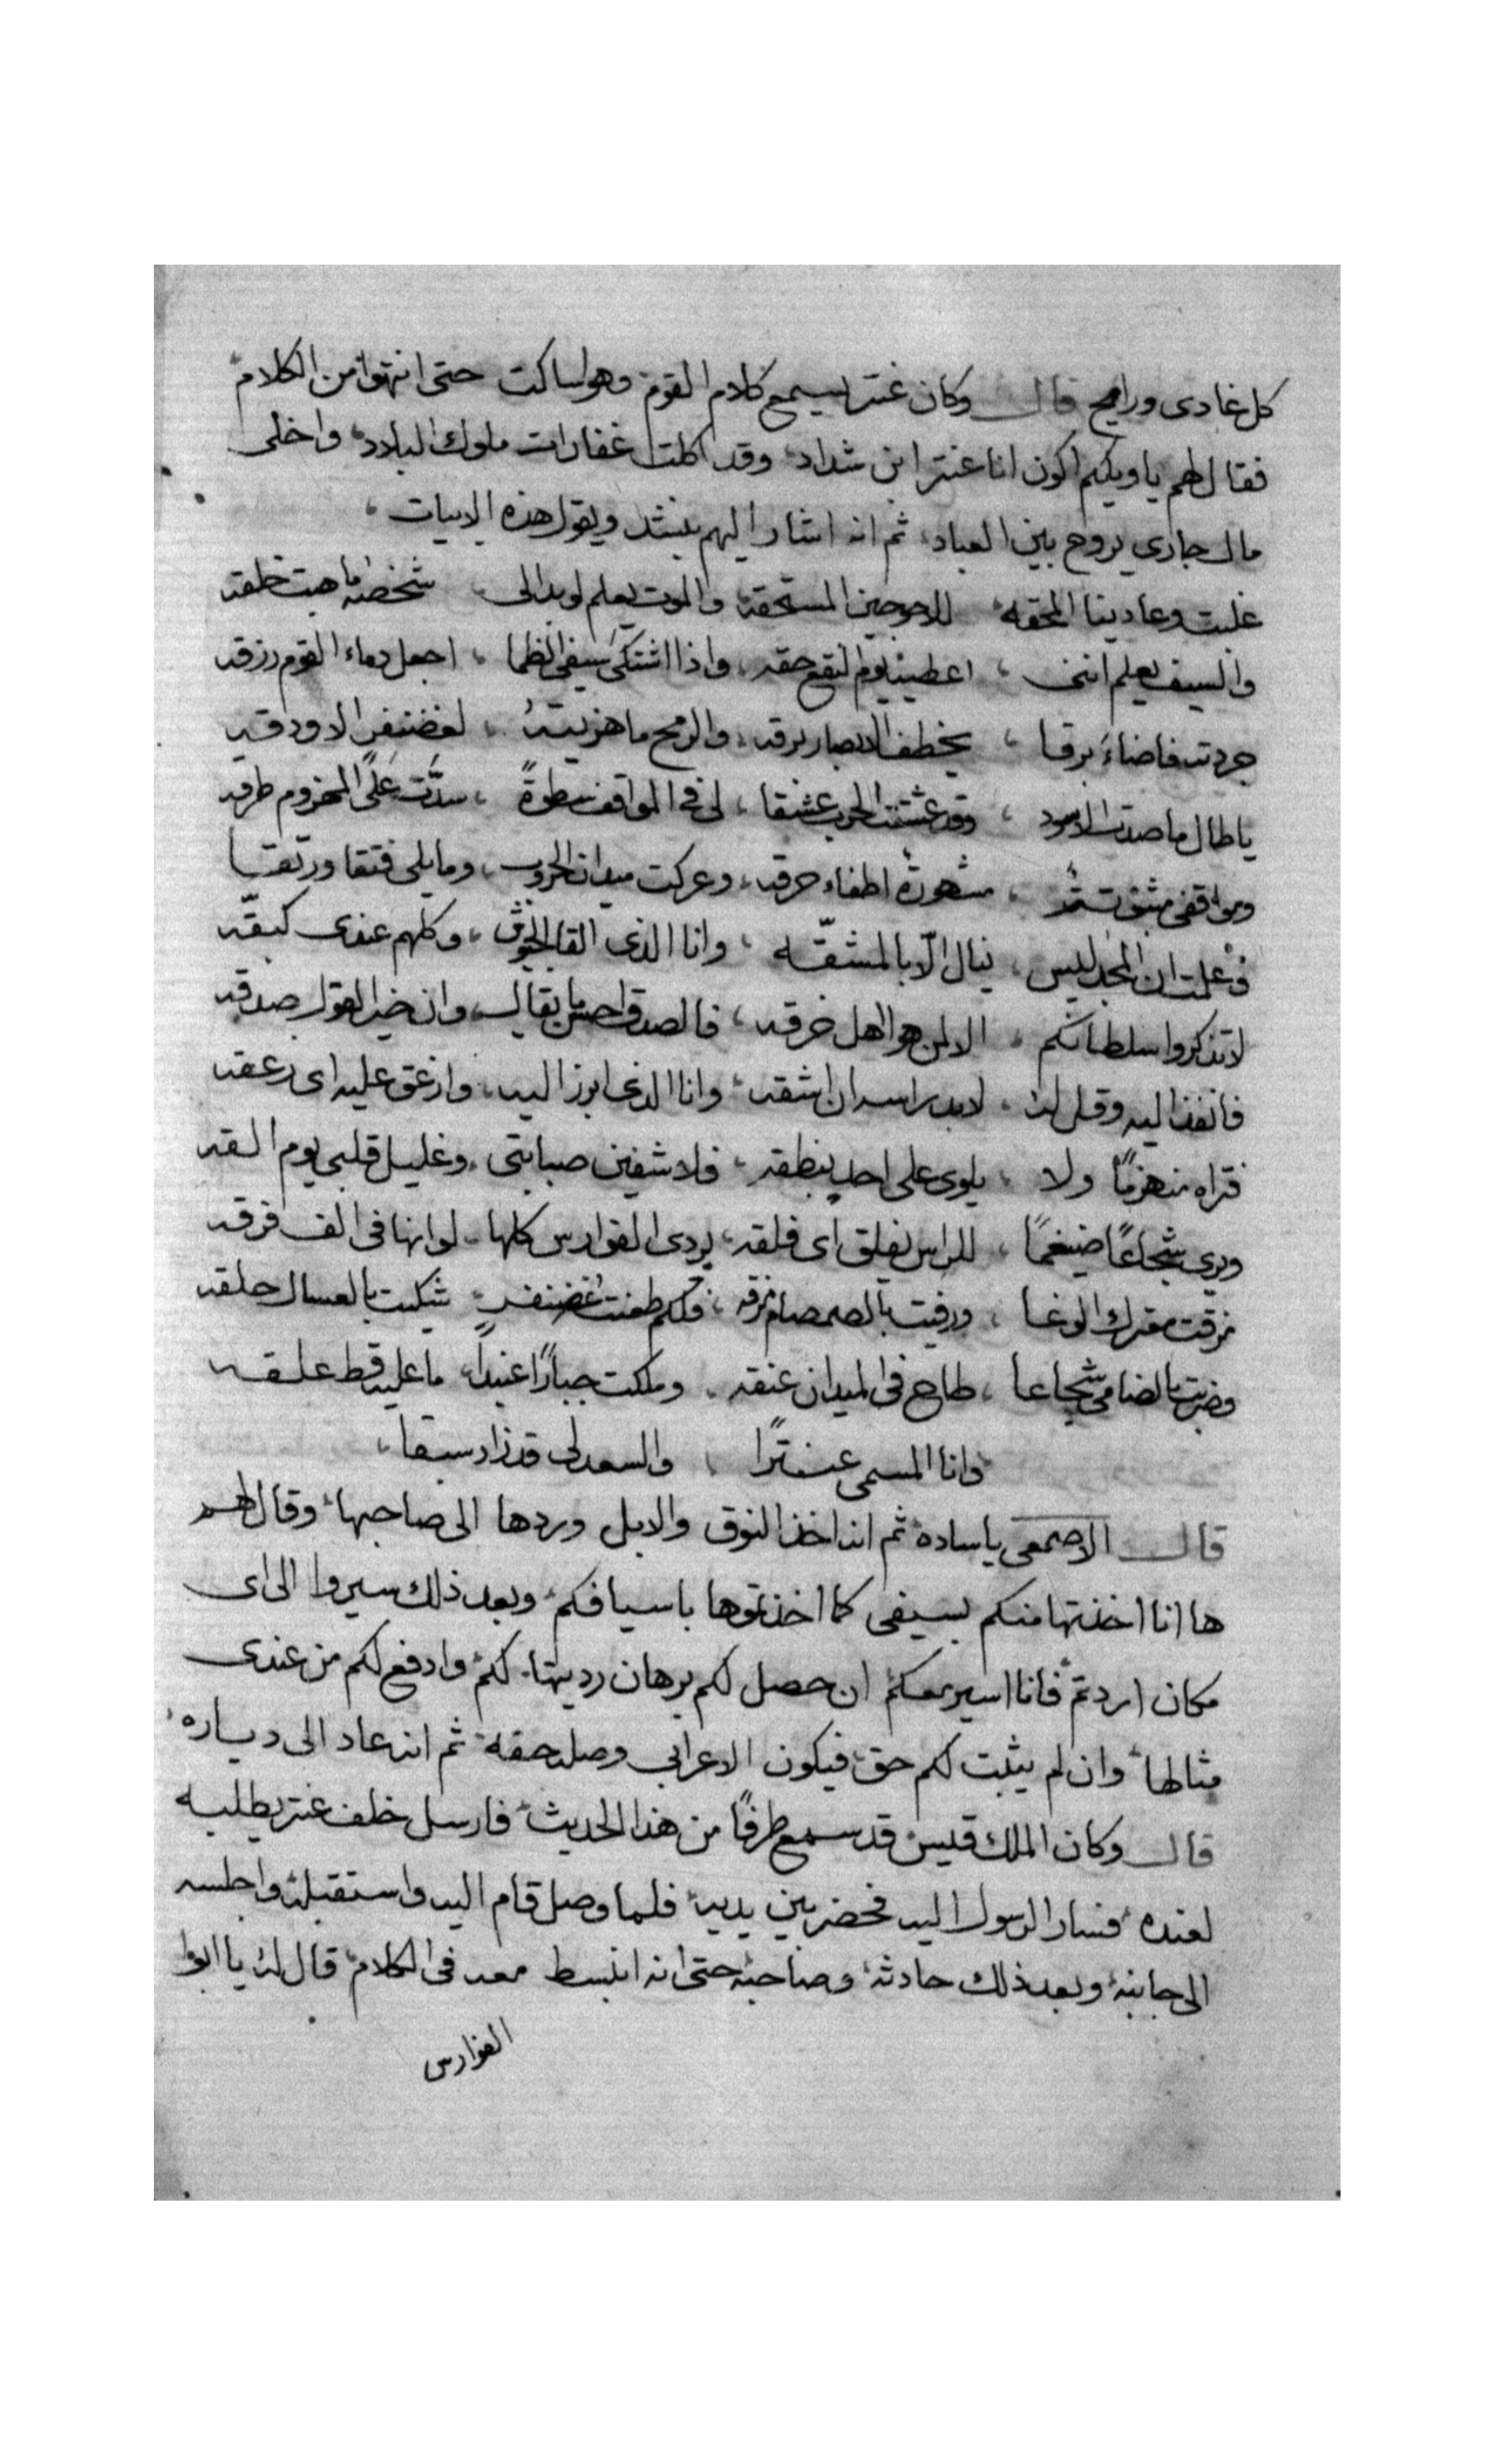 كل غادى ورايح قال وكان عنتر يسمع كلام القوم وهو ساكت حتى انتهوا من الكلام
فقال لهم يا ويلكم اكون انا عنتر ابن شداد وقد اكلت غفارات ملوك البلاد واخلى
مال جارى يروح بين العباد ثم انه اشار اليهم ينشد ويقول هذه الابيات
غلبت وعادينا المحقه والموت يعلم لو بدالى شخصه ما هبت خلقه
والسيف يعلم اننى اعطيه يوم النقع حقه واذا اشتكى سيفى الظما اجعل دماء القوم رزقه
جردته فاضاء برقا يخطف الابصار برقه والرمح ما هزيته لغضنفر الا ودقه
يا طال ما صدت الاسود وقد عشقت الحرب عشقا لى فى المواقف سطوة سدّت على المخزوم طرقه
ومواقفى مشهورة اطفاء حرقه وعركت ميدان الحروب وما يلى فتقا ورتقا
وعلمت ان المجد ليس ينال الّا بالمشقّه وانا الذى القا الجيوش وكلهم عندى كبقّه
لا تذكروا سلطانكم الا لمن هو اهل خرقه فالصدق احسن ما يقال وان خير القول صدقه
فانفذ اليه وقل له لابد راسه ان اشقه وانا الذى ابرز اليه وازعق عليه اى زعقه
فتراه منهزمًا ولا يلوى على احد بنطقه فلا شفين صبابتى وغليل قلبى يوم القه
ويرى شجاعًا ضيغمًا للراس يفلق اى فلقه يردى الفوارس كلها لو انها فى الف فرقه
مزقت معترك الوغا ورقيت بالصمصام فكم طعنت غضنفرٍ شكيت بالعسال حلقه
وضربت بالضامى شجاعا طاح فى الميدان عنقه وملكت جبارًا عنيدًا ما عليه قط علقه
وانا المسمى عنترًا والسعد لى قد زاد سبقا
قال الاصمعى يا ساده ثم انه اخذ النوق والابل وردها الى صاحبها وقال لهم
ها انا اخذتها منكم بسيفى كما اخذتموها باسيافكم وبعد ذلك سيروا الى اى
مكان اردتم فانا اسير معكم ان حصل لكم برهان رديتها لكم وادفع لكم من عندى
مثالها وان لم يثبت لكم حق فيكون الاعرابى وصل حقه ثم انه عاد الى دياره
قال وكان الملك قيس قد سمع طرفًا من هذا الحديث فارسل خلف عنتر يطلبه
لعنده فسار الرسول اليه فحضر بين يديه فلما وصل قام اليه واستقبله واجلسه
الى جانبه وبعد ذلك حادثه وصاحبه حتى انه انبسط معه فى الكلام قال له يا ابوا
الفوارس